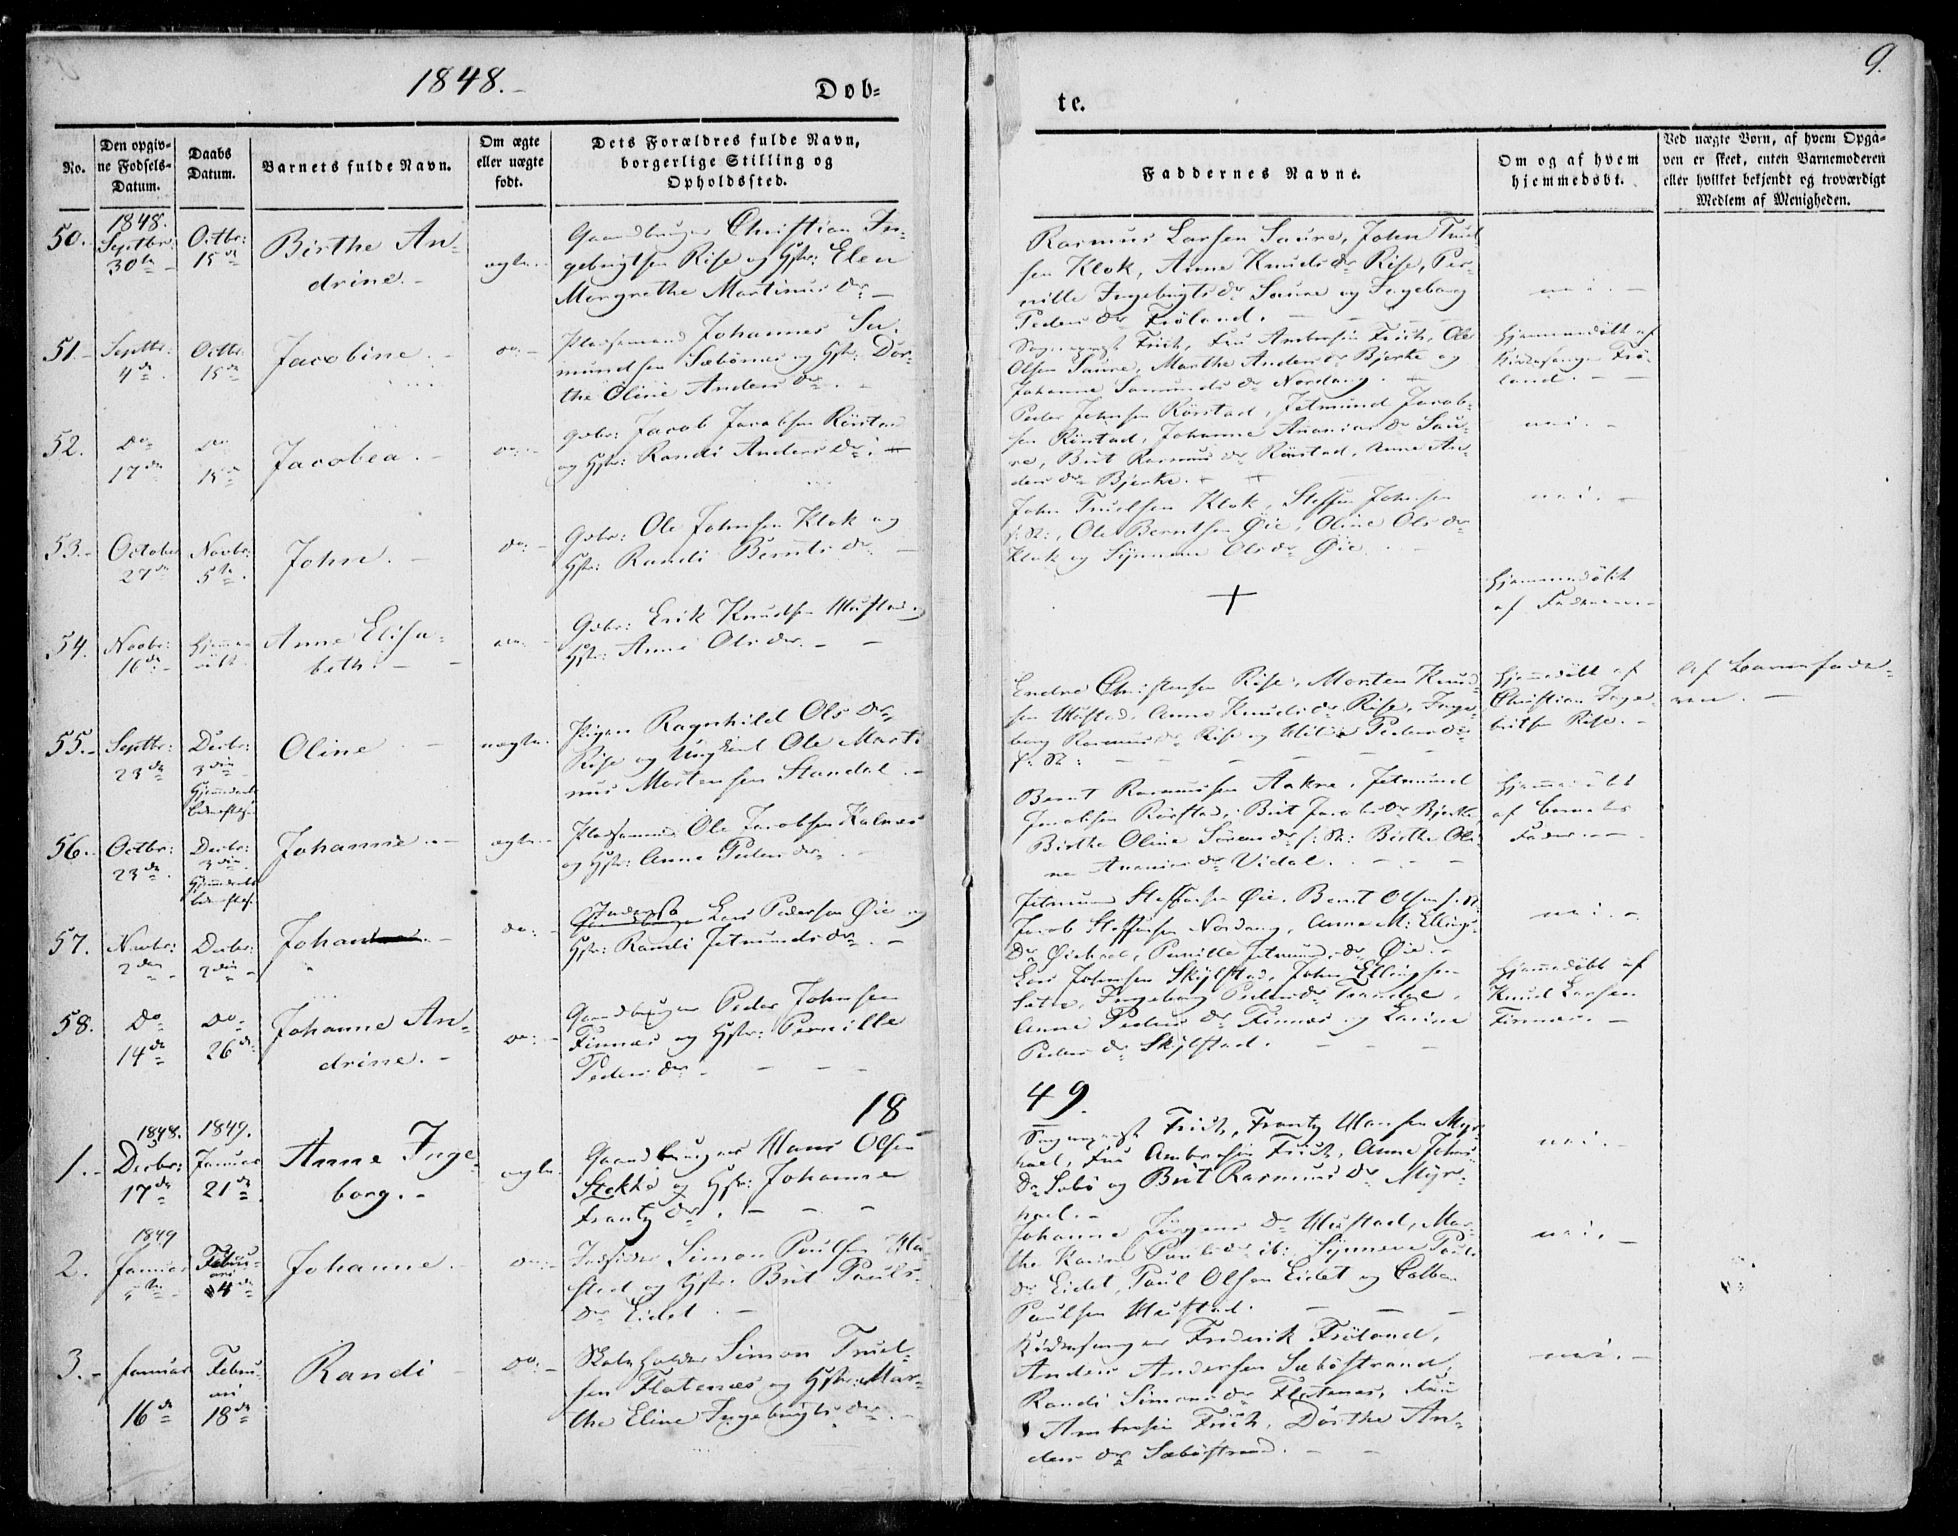 1848.
Døb-
te.
9.
No.
Den opgiv-
ne Fødsels-
Datum.
Daabs
Datum.
Barnets fulde Navn.
Om ægte
eller uægte
født.
Dets Forældres fulde Navn,
borgerlige Stilling og
Opholdssted.
Faddernes Navne.
Om og af hvem
hjemmedøbt.
Ved uægte Børn, af hvem Opga-
ven er skeet, enten Barnemoderen
eller hvilket bekjendt og troværdigt
Medlem af Menigheden.
50.
1848.
Septbr:
30te
Octbr:
15de
Birthe An-
drine.
ægte.
Gaardbruger Christian In-
gebrigtsen Rise og Hstr: Elen
Margrethe Martinus Dr
Rasmus Larsen Saure, John Truel
sen Klok, Anne Knuds Dr Rise, Per-
nille Ingebrigts Dr Saure og Ingeborg
Peders Dr Frøland.
nei.
51.
Septbr:
4de
Octbr:
15de
Jacobine
do:
Pladsemand Johannes Sa-
mundsen Sæbønes og Hstr: Dor-
the Oline Anders Dr
Sognepræst Frich, Fru Ambrosia Frich, Ole
Olsen Saure, Marthe Anders Dr Bjerke og
Johanne Samunds Dr Nordang.
Hjemmedøbt af
Kirkesanger Frø-
land.
52.
Do
17de
Do
15de
Jacobea.
do:
Gbr: Jacob Jacobsen Rørstad
og Hstr: Randi Anders Dr
Peder Johnsen Rørstad, Jetmund Jacob-
sen Rørstad, Johanne Ananias Dr Sau-
re, Brit Rasmus Dr Rørstad, Anne An-
ders Dr Bjerke.
nei.
53.
October
27de
Novbr:
5te
John.
do:
Gbr: Ole Johnsen Klok og
Hstr: Randi Bernts Dr
John Truelsen Klok, Steffen Johnsen
f: St:, Ole Berntsen Øie, Oline Ols Dr
Klok og Synneve Ols Dr Øie.
nei.
54.
Novbr:
16de
Hjemme-
døbt.
Anne Elisa-
beth.
do:
Gbr: Erik Knudsen Mustad og
Hstr: Anne Ols Dr
+
Hjemmedøbt
af Faderen
55.
Septbr:
23de
Decbr:
3die
Hjemmedaab
bekræftes.
Oline
uægte.
Pigen Ragnhild Ols Dr
Rise og Ungkarl Ole Marti-
nus Mortensen Standal.
Endre Christensen Rise, Morten Knud-
sen Mustad, Anne Knuds Dr Rise, Inge-
borg Rasmus Dr Rise og Peders Dr
f: St:
Hjemmedøbt af
Christian Inge-
britsen Rise.
Af Barnefade-
ren.
56.
Octbr:
23de
Decbr:
3die
Hjemmedaab
bekræftes.
Johanne.
ægte.
Pladsemand Ole Jacobsen Kalnæs
og Hstr: Anne Peders Dr
Bernt Rasmussen Aakre, Jetmund
Jacobsen Rørstad, Brit Jacobs Dr Bjerke
Birthe Oline f: St: Birthe Oli-
ne Ananias Dr Vidal.
Hjemmedøbt
af Barnets
Fader.
57.
Novbr:
2den
Decbr:
3die
Johan
do:
Inderst
Gaardbruger Lars Pedersen Øie og
Hstr: Randi Jetmunds Dr
Jetmund Steffensen Øie, Bernt Olsen f: St:
Jacob Steffensen Nordang, Anne M: Ellings
Dr Øiehoel, Pernille Jetmunds Dr Øie.
nei.
58.
Do
14de
Do
26de
Johanne An-
drine.
do:
Gaardbruger Peder Johnsen
Finnæs og Hstr: Pernille
Peders Dr
Lars Johnsen Skylstad, John Ellingsen
Sætre, Ingeborg Peders Dr Trandal,
Anne Peders Dr Finnæs og Karine
Peders Dr Skylstad.
Hjemmedøbt af
Knud Larsen
Finnæs.
18
49.
1.
1848.
Decbr:
17de
1849.
Januar
21de
Anne Inge-
borg.
ægte.
Gaardbruger Hans Olsen
Stokke og Hstr: Johanne
Frantz Dr.
Sognepræst Frich, Frantz Hansen Myr-
hoel, Fru Ambrosia Frich, Anne Johns
Dr Sæbø og Brit Rasmus Dr Myr-
hoel.
nei.
2.
1849
Januar
Februa-
ri
4de
Johanne.
do:
Indsider Simon Paulsen Mu-
stad og Hstr: Brit Pauls
Dr Eidet.
Johanne Jørgens Dr Mustad, Mar-
the Karine Pauls Dr ib: Synneve Pauls
Dr Eidet, Paul Olsen Eidet og Colben
Paulsen Mustad.
nei.
3.
Januar
16de
Febru-
ari
18de
Randi
do:
Skoleholder Simon Truel-
sen Flotenæs og Hstr: Mar-
the Eline Ingebrigts Dr
Kirkesanger Frederik Frøland,
Anders Andersen Sæbøstrand,
Randi Simons Dr Flotenæs, Fru
Ambrosia Frich, Dorthe An-
ders Dr Sæbøstrand.
nei.